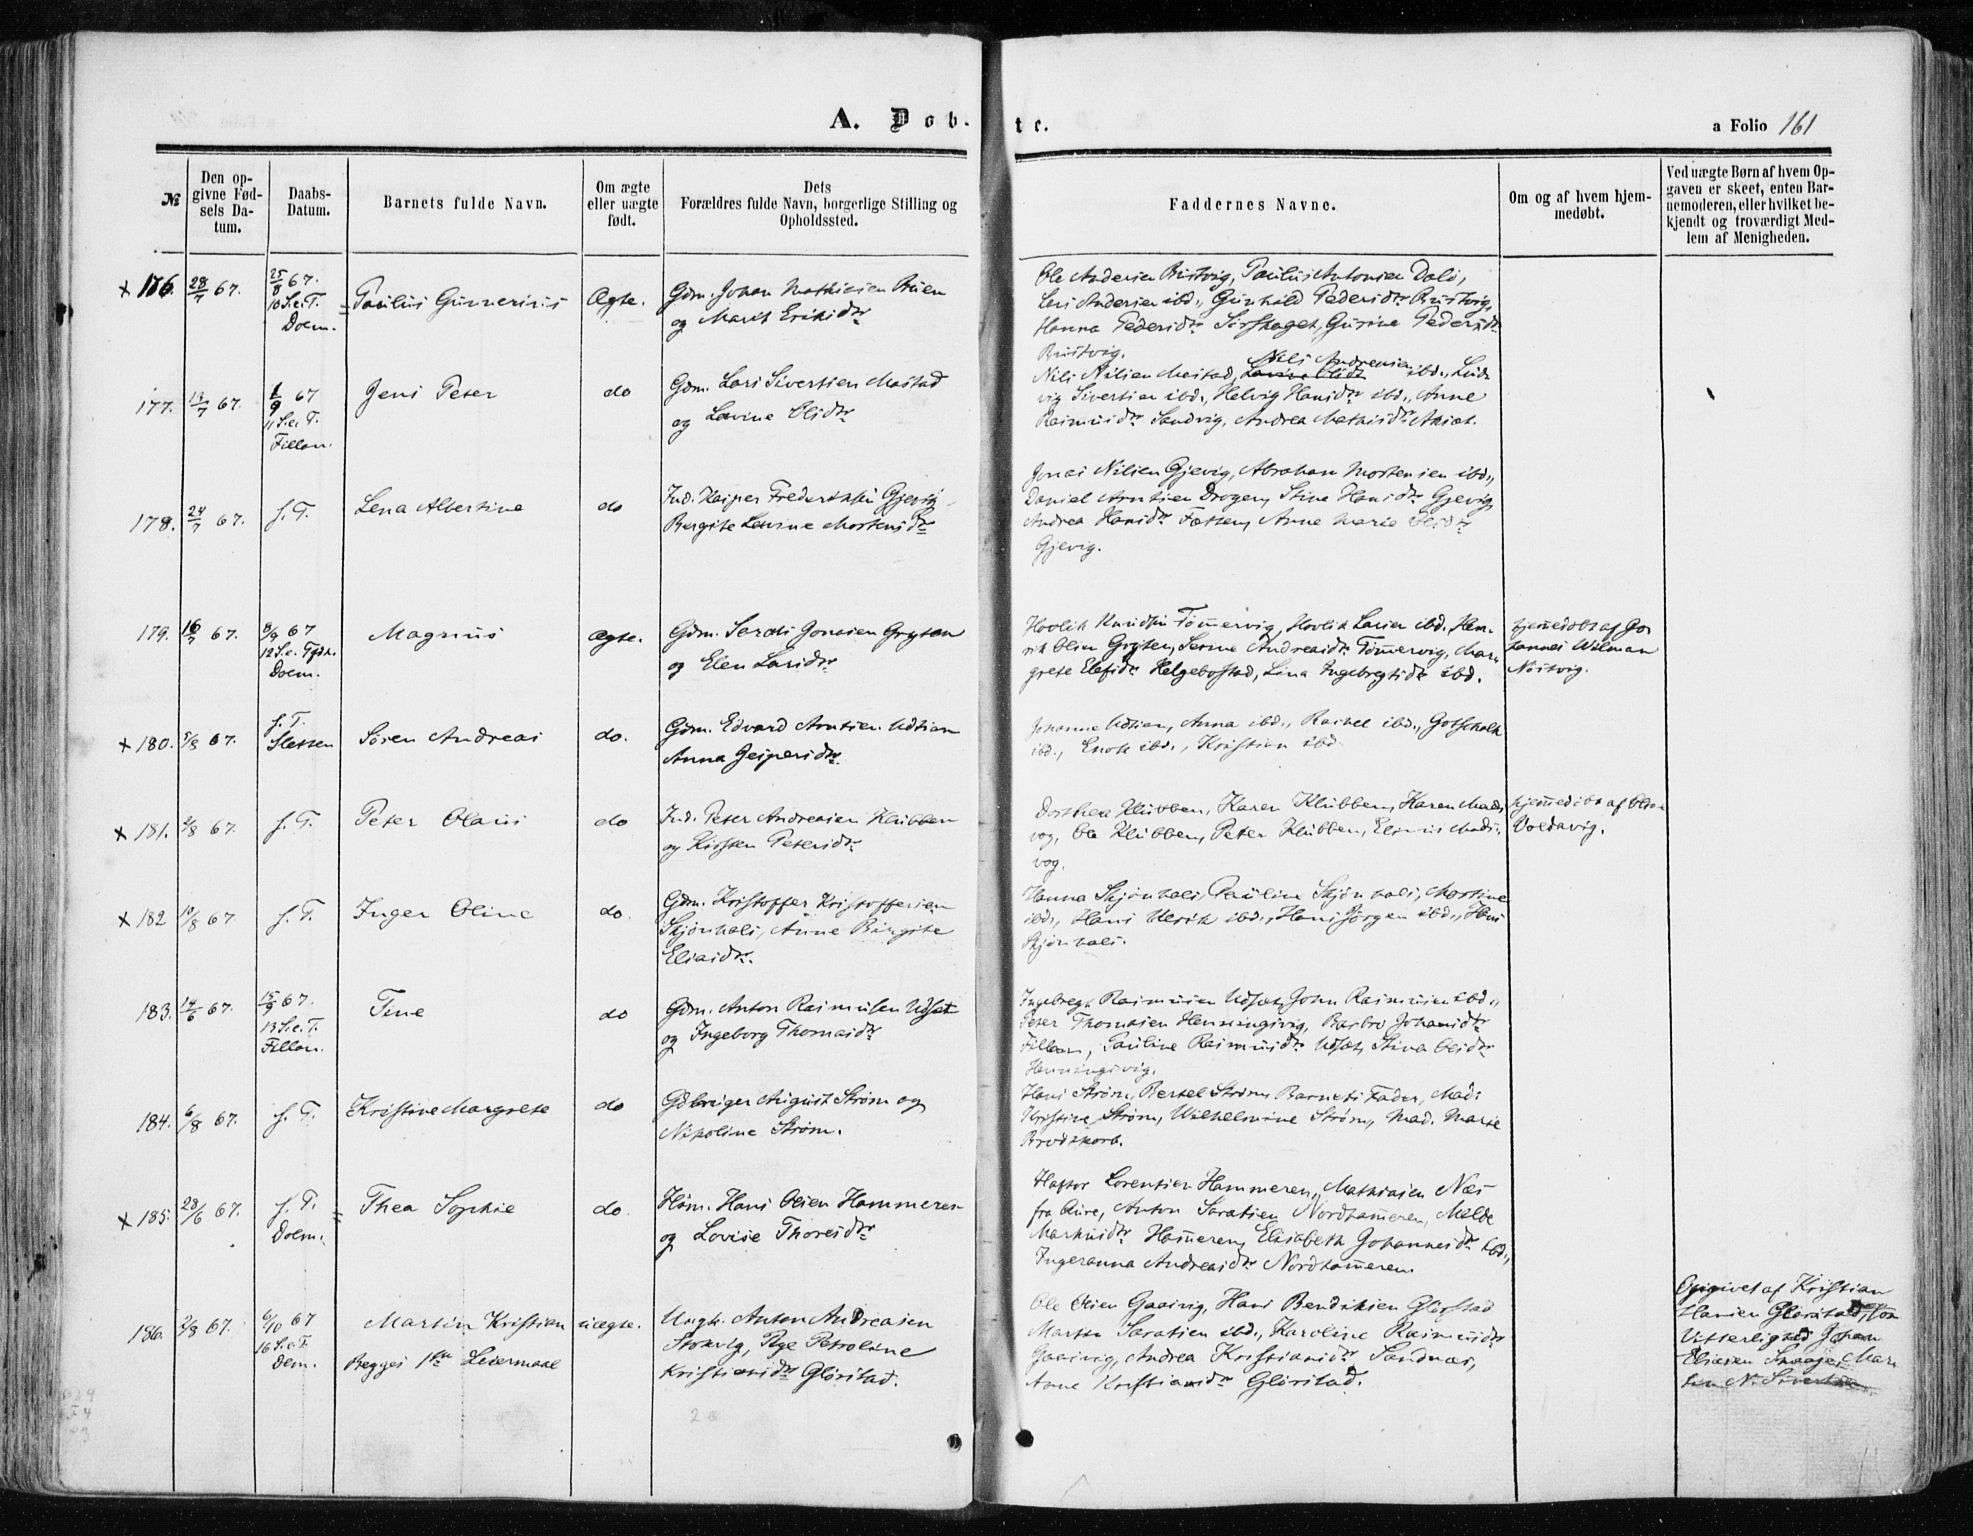 A. Døb- te.
a Folio 161
№
Den opgivne Fødsels Datum.
Daabs-Datum.
Barnets fulde Navn.
Om ægte eller uægte født.
Dets Forældres fulde Navn, borgerlige Stilling og Opholdssted.
Faddernes Navne.
Om og af hvem hjemmedøbt.
Ved uægte Børn af hvem Opgaven er skeet, enten Barnemoderen, eller hvilket bekjendt og troværdigt Medlem af Menigheden.
x 176. 28/7 67. 25/8 67. 10 S.e.T. Dolm. Paulus Gunnerius Ægte. Gdm. Johan Mathiesen
og Marit Eriksdtr.
Ole Andersen Bustvig, Paulus Antonsen Dalø,
Lars Andersen ibd., Gunhild Pedersdtr. Bustvig,
Hanna Pedersdtr. Gurine Pedersdtr.
Bustvig.
177. 13/7 67. 1/9 67 11 S.e.T. Fillan. Jens Peter do Gdm. Lars Sivertsen Mastad
og Lovine Olsdtr.
Nils Nilsen Mastad, Nils Andreasen ibd., Lud-
vig Sivertsen ibd., Helvig Hansdtr. ibd., Anne
Rasmusdtr. Sandvig, Andrea Mathisdtr.
178. 24/7 67. s. T. Lena Albertine do Ind. Kasper Frederiksen Gjevig
Bergite Lovine Mortensdtr.
Jonas Nilsen Gjevig, Abraham Mortensen ibd.,
Daniel Arntsen Drogen, Stine Hansdtr. Gjevig,
Andrea Hansdtr. Fætten, Anne Marie Olsdtr.
Gjevig.
179. 16/7 67. 8/9 67 12 S.e. Dolm. Magnus Ægte. Gdm. Jonasen Gryten
og Elen Larsdtr.
Hovlik Knudsen Tømmervig, Hovlik Larsen ibd., Hen-
rik Olsen Gryten, Andreasdtr. Tømmervig, Mar-
grete Helgebostad, Lina Ingebregtsdtr. ibd.
hjemmedøbt af Jo-
hannes Wilman
Nøstvig.
x 180. 5/8 67. s. T. Sletten Søren Andreas do. Gdm. Edvard Arntsen Udtian
Anna Jespersdtr.
Johanne Udtian, Anna ibd., Rachel ibd., Gotschalk
ibd., Enok ibd., Kristian ibd.
x 181. 2/8 67. s. T. Peter Olaus do Ind. Peter Andreasen Klubben
og Kirsten Petersdtr.
Dorthea Klubben, Karen Klubben, Karen Mads-
vog, Ole Klubben, Peter Klubben, Mads-
vog.
hjemmedøbt af
Voldavig.
x 182 10/8 67. s. T. Inger Oline do. Gdm. Kristoffer Kristoffersen
Skjønhals, Anne Birgite
Eliasdtr.
Hanna Skjønhals, Pauline Skjønhals, Martine
ibd., Hans Ulrik ibd., Hans Jørgen ibd., Hans
Skjønhals.
183. 14/6 67. 15/9 67. 13 S.e.T. Fillan. Tine do Gdm. Anton Rasmusen Udset
og Ingeborg Thomasdtr.
Ingebregt Rasmusen Udset, John Rasmusen ibd.,
Peter Thomasen Henningsvig, Barbro Johansdtr.
Fillan, Pauline Rasmusdtr. Udset, Stina Olsdtr.
Henningsvig.
184. 6/8 67. s. T. Kristine Margrete do Gdbruger August Strøm og
Nikoline Strøm.
Hans Strøm, Bertel Strøm, Barnets Fader, Mad:
Kristine Strøm, Wilhelmine Strøm, Mad. Marie
Brodtkorb.
x 185. 28/6 67. s. T. Dolm. Thea Sophie do. Hsm. Hans Olsen Hammeren
og Lovise Thoresdtr.
Haftor Lorentsen Hammeren, Mathiasen Næs
fra Aure, Anton Saratsen Nordhammeren, Milde
Markusdtr. Hammeren, Elisabeth Johannesdtr. ibd.,
Ingeranna Andreasdtr. Nordhammeren
186. 2/8 67. 6/10 67 16 S.e.T. Dlm. Martin Kristian uægte. Ungk. Anton Andreasen
Begges 1ste Leiermaal
Stokvig, Pige Petroline
Kristiansdtr. Gløsstad.
Ole Olsen Gaasvig, Hans Bendiksen Gløsstad
Morten Saratsen ibd., Karoline Rasmusdtr.
Gaasvig, Andrea Kristiansdtr. Sandnæs,
Anne Kristiansdtr. Gløsstad.
Opgivet af Kristian
Hansen Gløsstad,
Vitterlighed Johan
Eliasen